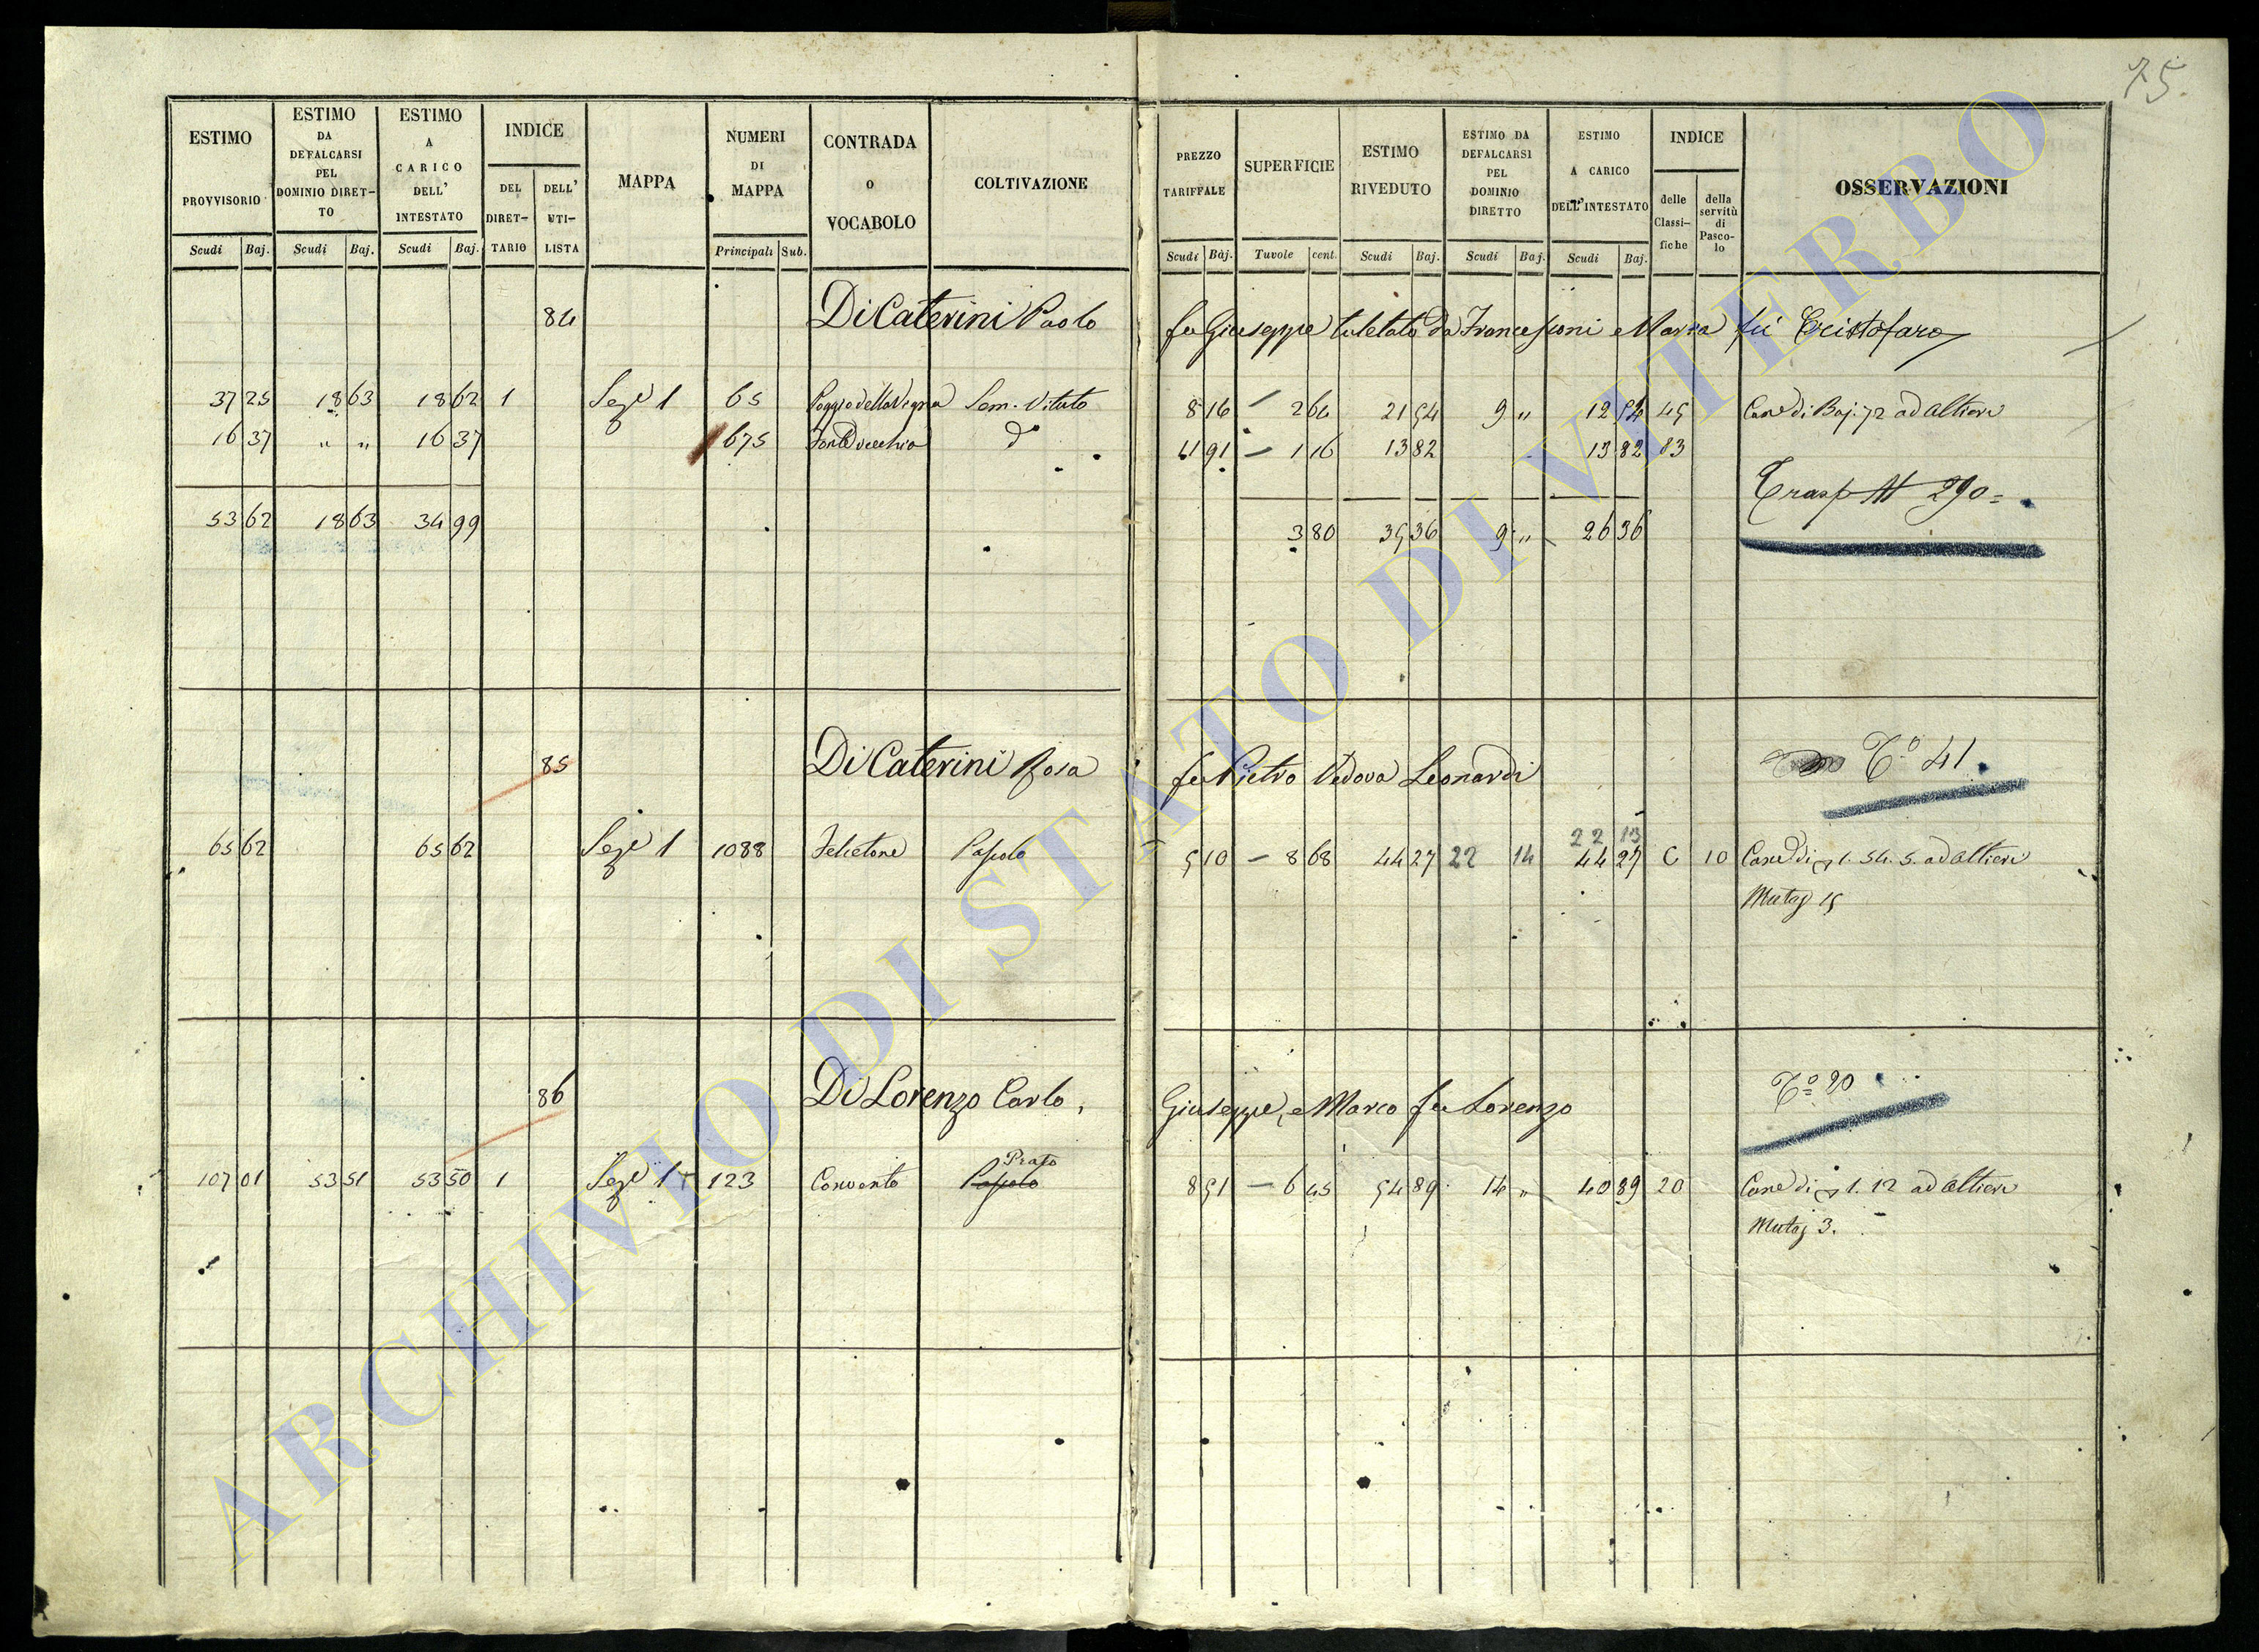 75.
ESTIMO PROVVISORIO
ESTIMO DA DEFALCARSI PEL DOMINIO DIRET-TO
ESTIMO A CARICO DELL' INTESTATO
INDICE
DEL DIRET-TARIO
DELL' UTI-LISTA
MAPPA
NUMERI DI MAPPA
CONTRADA O VOCABOLO
COLTIVAZIONE
PREZZO TARIFFALE
SUPERFICIE
ESTIMO RIVEDUTO
ESTIMO DA DEFALCARSI PEL DOMINIO DIRETTO
ESTIMO A CARICO DELL' INTESTATO
INDICE
delle Classi-fiche
della servitù di Pasco-lo
OSSERVAZIONI
Scudi Baj. Scudi Baj. Scudi Baj. Principali Sub. Scudi Baj. Tavole cent. Scudi Baj. Scudi Baj. Scudi Baj.
84 Di Caterini Paolo fu Giuseppe tutelato da Francesconi Maria fu Cristofaro
37 25 18 63 18 62 1 Sez.e 1 65 Poggio della Vigna Sem. Vitato 8 16 – 2 64 21 54 9 " 12 54 45 Can.e di Baj. 72 ad Altieri
16 37 " " 16 37 675 Fonte vecchio d.o 11 91 – 1 16 13 82 13 82 83
Trasp. At 290=
53 62 18 63 34 99 3 80 35 36 9 " 26 36
85 Di Caterini Rosa fu Pietro Vedova Leonardi T.o 41.
22 13
65 62 65 62 Sez.e 1 1088 Felcetone Pascolo 5 10 – 8 68 44 27 22 14 44 27 C 10 Can.e di 1. 54. 5. ad Altieri
Mutaz 15
86 Di Lorenzo Carlo, Giuseppe, e Marco fu Lorenzo T.o 20
Prato
107 01 53 51 53 50 1 Sez.e 1 + 123 Convento Pascolo 8 51 – 6 45 54 89 14 " 40 89 20 Can.e di 1. 12 ad Altieri
Mutaz 3.
ARCHIVIO DI STATO DI VITERBO